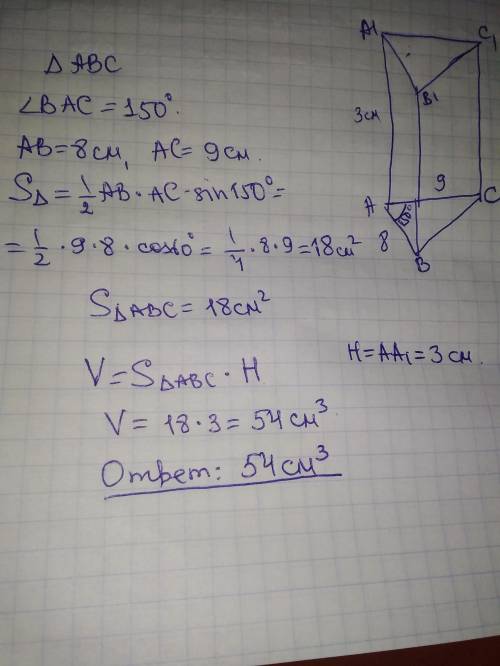 Δ ABC
∠BAC = 150°.
AB = 8 см, AC = 9 см.
S△ = 1/2 AB · AC · sin150° =
= 1/2 · 9 · 8 · cos60° = 1/4 · 8 · 9 = 18 см²
S△ABC = 18 см²
V = S△ABC · H
V = 18 · 3 = 54 см³
Ответ: 54 см³
A1
C1
B1
3 см
9
A
150°
C
8
B
H = AA1 = 3 см.